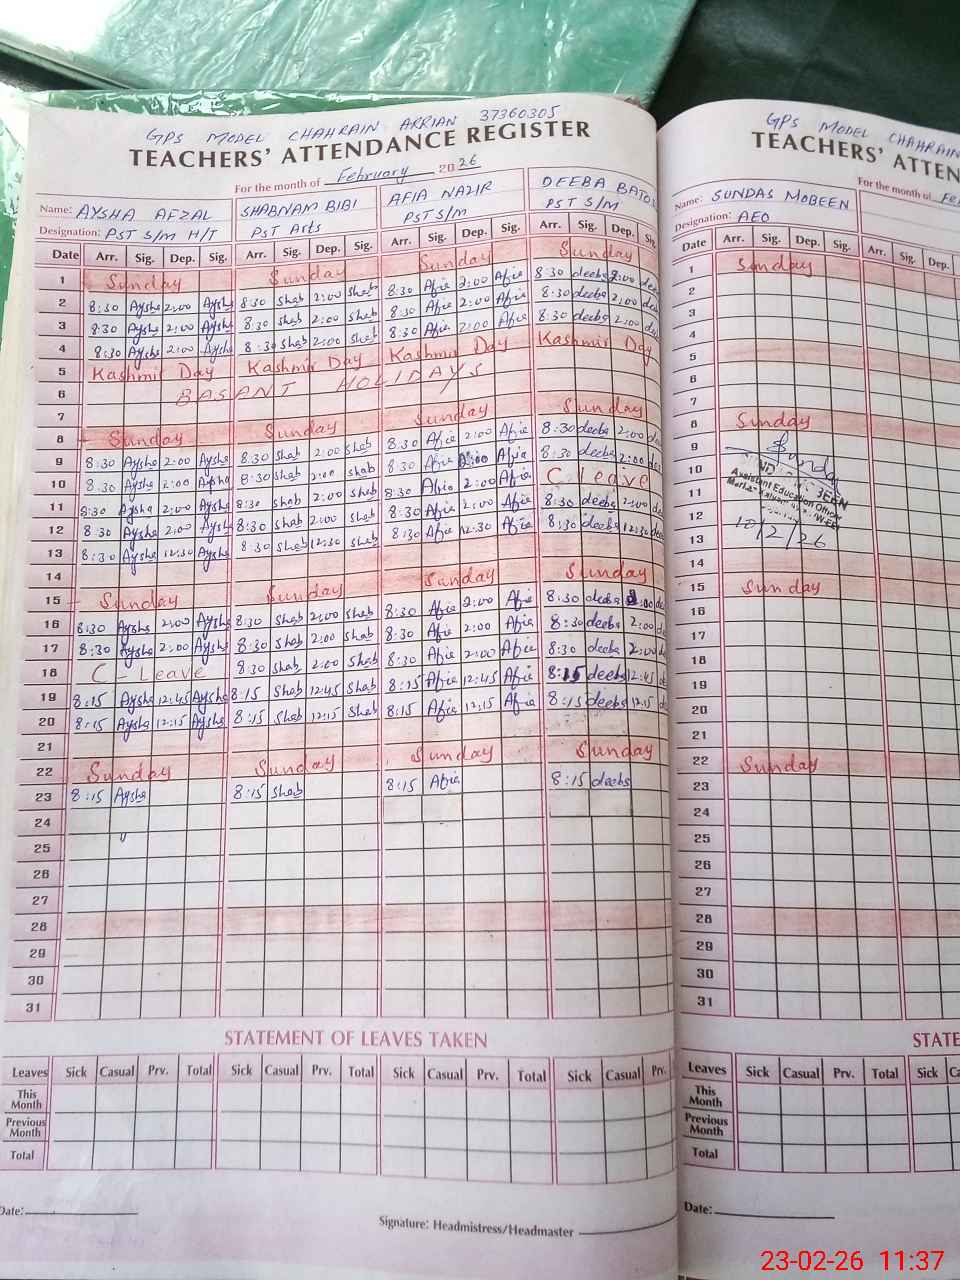 GPS MODEL CHAHRAIN ARRIAN 37360305
TEACHERS' ATTENDANCE REGISTER
For the month of February 2026
Name: AYSHA AFZAL SHABNAM BIBI AFIA NAZIR DEEBA BATO
Designation: PST S/M H/T PST Arts PST S/M PST S/M
Date Arr. Sig. Dep. Sig. Arr. Sig. Dep. Sig. Arr. Sig. Dep. Sig. Arr. Sig. Dep. Sig.
1 Sunday Sunday Sunday Sunday
2 8:30 Aysha 2:00 Aysha 8:30 Shab 2:00 Shab 8:30 Afia 2:00 Afia 8:30 deeba 2:00 dee
3 8:30 Aysha 2:00 Aysha 8:30 Shab 2:00 Shab 8:30 Afia 2:00 Afia 8:30 deeba 2:00 dee
4 8:30 Aysha 2:00 Aysha 8:30 Shab 2:00 Shab 8:30 Afia 2:00 Afia 8:30 deeba 2:00 dee
5 Kashmir Day Kashmir Day Kashmir Day Kashmir Day
6 BASANT HOLIDAYS
7
8 Sunday Sunday Sunday Sunday
9 8:30 Aysha 2:00 Aysha 8:30 Shab 2:00 Shab 8:30 Afia 2:00 Afia 8:30 deeba 2:00 dee
10 8:30 Aysha 2:00 Aysha 8:30 Shab 2:00 Shab 8:30 Afia 2:00 Afia 8:30 deeba 2:00 dee
11 8:30 Aysha 2:00 Aysha 8:30 Shab 2:00 Shab 8:30 Afia 2:00 Afia C Leave
12 8:30 Aysha 2:00 Aysha 8:30 Shab 2:00 Shab 8:30 Afia 2:00 Afia 8:30 deeba 2:00 dee
13 8:30 Aysha 12:30 Aysha 8:30 Shab 12:30 Shab 8:30 Afia 12:30 Afia 8:30 deeba 12:30 dee
14
15 Sunday Sunday Sunday Sunday
16 8:30 Aysha 2:00 Aysha 8:30 Shab 2:00 Shab 8:30 Afia 2:00 Afia 8:30 deeba 2:00 de
17 8:30 Aysha 2:00 Aysha 8:30 Shab 2:00 Shab 8:30 Afia 2:00 Afia 8:30 deeba 2:00 de
18 C-Leave 8:30 Shab 2:00 Shab 8:30 Afia 2:00 Afia 8:30 deeba 2:00 de
19 8:15 Aysha 12:45 Aysha 8:15 Shab 12:45 Shab 8:15 Afia 12:45 Afia 8:15 deeba 12:45 d
20 8:15 Aysha 12:15 Aysha 8:15 Shab 12:15 Shab 8:15 Afia 12:15 Afia 8:15 deeba 12:15 d
21
22 Sunday Sunday Sunday Sunday
23 8:15 Aysha 8:15 Shab 8:15 Afia 8:15 deeba
24
25
26
27
28
29
30
31
STATEMENT OF LEAVES TAKEN
Leaves Sick Casual Prv. Total Sick Casual Prv. Total Sick Casual Prv. Total Sick Casual Prv.
This Month
Previous Month
Total
Date:
Signature: Headmistress/Headmaster
GPS MODEL CHAHRAIN
TEACHERS' ATTEN
For the month of
Name: SUNDAS MOBEEN
Designation: AEO
Date Arr. Sig. Dep. Sig. Arr. Sig. Dep.
1 Sunday
2
3
4
5
6
7
8 Sunday
9
10
Assistant Education Officer
11
12
10/2/26
13
14
15 Sunday
16
17
18
19
20
21
22 Sunday
23
24
25
26
27
28
29
30
31
STATE
Leaves Sick Casual Prv. Total Sick
This Month
Previous Month
Total
Date:
23-02-26 11:37